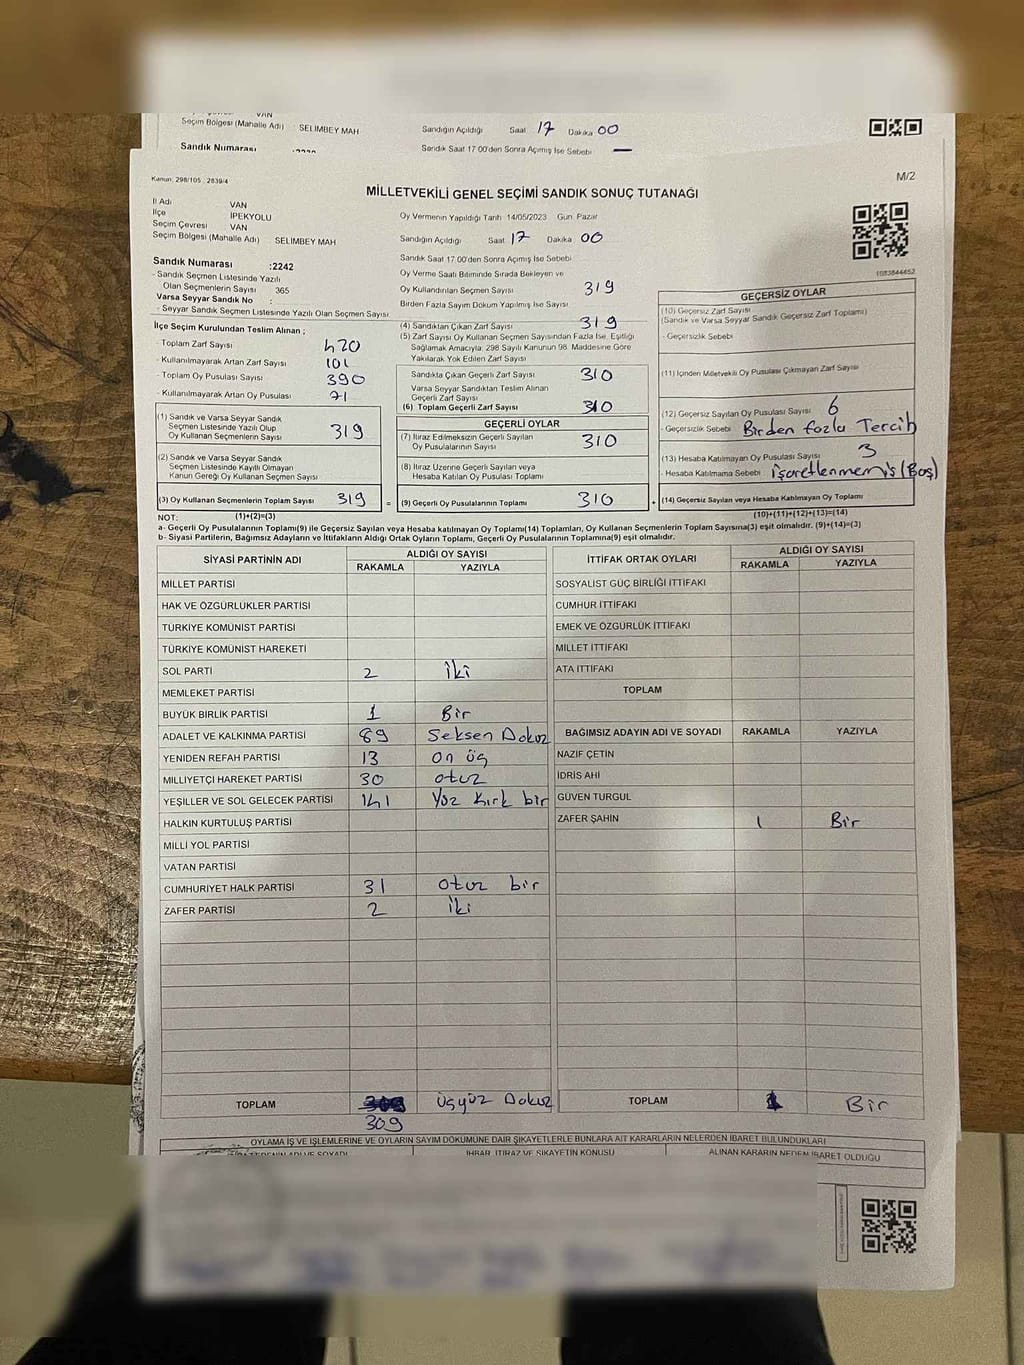 VAN
Seçim Bölgesi (Mahalle Adı) : SELİMBEY MAH
Sandığın Açıldığı Saat 17 Dakika 00
Sandık Numarası
Sandık Saat 17 00'den Sonra Açmış İse Sebebi —
Kanun: 298/105 , 2839/4
M/2
MİLLETVEKİLİ GENEL SEÇİMİ SANDIK SONUÇ TUTANAĞI
İl Adı VAN
İlçe İPEKYOLU
Seçim Çevresi VAN
Seçim Bölgesi (Mahalle Adı) : SELİMBEY MAH
Oy Vermenin Yapıldığı Tarih 14/05/2023 Gün Pazar
Sandığın Açıldığı Saat 17 Dakika 00
Sandık Saat 17 00'den Sonra Açmış İse Sebebi
Sandık Numarası :2242
- Sandık Seçmen Listesinde Yazılı
Olan Seçmenlerin Sayısı 365
Varsa Seyyar Sandık No :
- Seyyar Sandık Seçmen Listesinde Yazılı Olan Seçmen Sayısı
Oy Verme Saati Bitiminde Sırada Bekleyen ve
Oy Kullandırılan Seçmen Sayısı 319
Birden Fazla Sayım Döküm Yapılmış İse Sayısı
1083844452
İlçe Seçim Kurulundan Teslim Alınan ;
- Toplam Zarf Sayısı 420
- Kullanılmayarak Artan Zarf Sayısı 101
- Toplam Oy Pusulası Sayısı 390
- Kullanılmayarak Artan Oy Pusulası 71
(1) Sandık ve Varsa Seyyar Sandık
Seçmen Listesinde Yazılı Olup
Oy Kullanan Seçmenlerin Sayısı 319
(2) Sandık ve Varsa Seyyar Sandık
Seçmen Listesinde Kayıtlı Olmayan
Kanun Gereği Oy Kullanan Seçmen Sayısı
(3) Oy Kullanan Seçmenlerin Toplam Sayısı 319
(1)+(2)=(3)
(4) Sandıktan Çıkan Zarf Sayısı 319
(5) Zarf Sayısı Oy Kullanan Seçmen Sayısından Fazla İse, Eşitliği
Sağlamak Amacıyla, 298 Sayılı Kanunun 98. Maddesine Göre
Yakılarak Yok Edilen Zarf Sayısı
Sandıkta Çıkan Geçerli Zarf Sayısı 310
Varsa Seyyar Sandıktan Teslim Alınan
Geçerli Zarf Sayısı
(6) Toplam Geçerli Zarf Sayısı 310
GEÇERLİ OYLAR
(7) İtiraz Edilmeksizin Geçerli Sayılan
Oy Pusulalarının Sayısı 310
(8) İtiraz Üzerine Geçerli Sayılan veya
Hesaba Katılan Oy Pusulası Toplamı
= (9) Geçerli Oy Pusulalarının Toplamı 310 +
GEÇERSİZ OYLAR
(10) Geçersiz Zarf Sayısı
(Sandık ve Varsa Seyyar Sandık Geçersiz Zarf Toplamı)
- Geçersizlik Sebebi
(11) İçinden Milletvekili Oy Pusulası Çıkmayan Zarf Sayısı
(12) Geçersiz Sayılan Oy Pusulası Sayısı 6
- Geçersizlik Sebebi Birden fazla Tercih
(13) Hesaba Katılmayan Oy Pusulası Sayısı 3
- Hesaba Katılmama Sebebi İşaretlenmemiş (Boş)
(14) Geçersiz Sayılan veya Hesaba Katılmayan Oy Toplamı
(10)+(11)+(12)+(13)=(14)
NOT:
a- Geçerli Oy Pusulalarının Toplamı(9) ile Geçersiz Sayılan veya Hesaba katılmayan Oy Toplamı(14) Toplamları, Oy Kullanan Seçmenlerin Toplam Sayısına(3) eşit olmalıdır. (9)+(14)=(3)
b- Siyasi Partilerin, Bağımsız Adayların ve İttifakların Aldığı Ortak Oyların Toplamı, Geçerli Oy Pusulalarının Toplamına(9) eşit olmalıdır.
SİYASİ PARTİNİN ADI ALDIĞI OY SAYISI
RAKAMLA YAZIYLA
MİLLET PARTİSİ
HAK VE ÖZGÜRLÜKLER PARTİSİ
TÜRKİYE KOMÜNİST PARTİSİ
TÜRKİYE KOMÜNİST HAREKETİ
SOL PARTİ 2 iki
MEMLEKET PARTİSİ
BÜYÜK BİRLİK PARTİSİ 1 Bir
ADALET VE KALKINMA PARTİSİ 89 Seksen Dokuz
YENİDEN REFAH PARTİSİ 13 on üç
MİLLİYETÇİ HAREKET PARTİSİ 30 otuz
YEŞİLLER VE SOL GELECEK PARTİSİ 141 Yüz kırk bir
HALKIN KURTULUŞ PARTİSİ
MİLLİ YOL PARTİSİ
VATAN PARTİSİ
CUMHURİYET HALK PARTİSİ 31 otuz bir
ZAFER PARTİSİ 2 iki
TOPLAM 309 Üçyüz Dokuz
İTTİFAK ORTAK OYLARI ALDIĞI OY SAYISI
RAKAMLA YAZIYLA
SOSYALİST GÜÇ BİRLİĞİ İTTİFAKI
CUMHUR İTTİFAKI
EMEK VE ÖZGÜRLÜK İTTİFAKI
MİLLET İTTİFAKI
ATA İTTİFAKI
TOPLAM
BAĞIMSIZ ADAYIN ADI VE SOYADI RAKAMLA YAZIYLA
NAZİF ÇETİN
İDRİS AHİ
GÜVEN TURGUL
ZAFER ŞAHİN 1 Bir
TOPLAM 1 Bir
OYLAMA İŞ VE İŞLEMLERİNE VE OYLARIN SAYIM DÖKÜMÜNE DAİR ŞİKAYETLERLE BUNLARA AİT KARARLARIN NELERDEN İBARET BULUNDUKLARI
ADI VE SOYADI İHBAR, İTİRAZ VE ŞİKAYETİN KONUSU ALINAN KARARIN NEDEN İBARET OLDUĞU